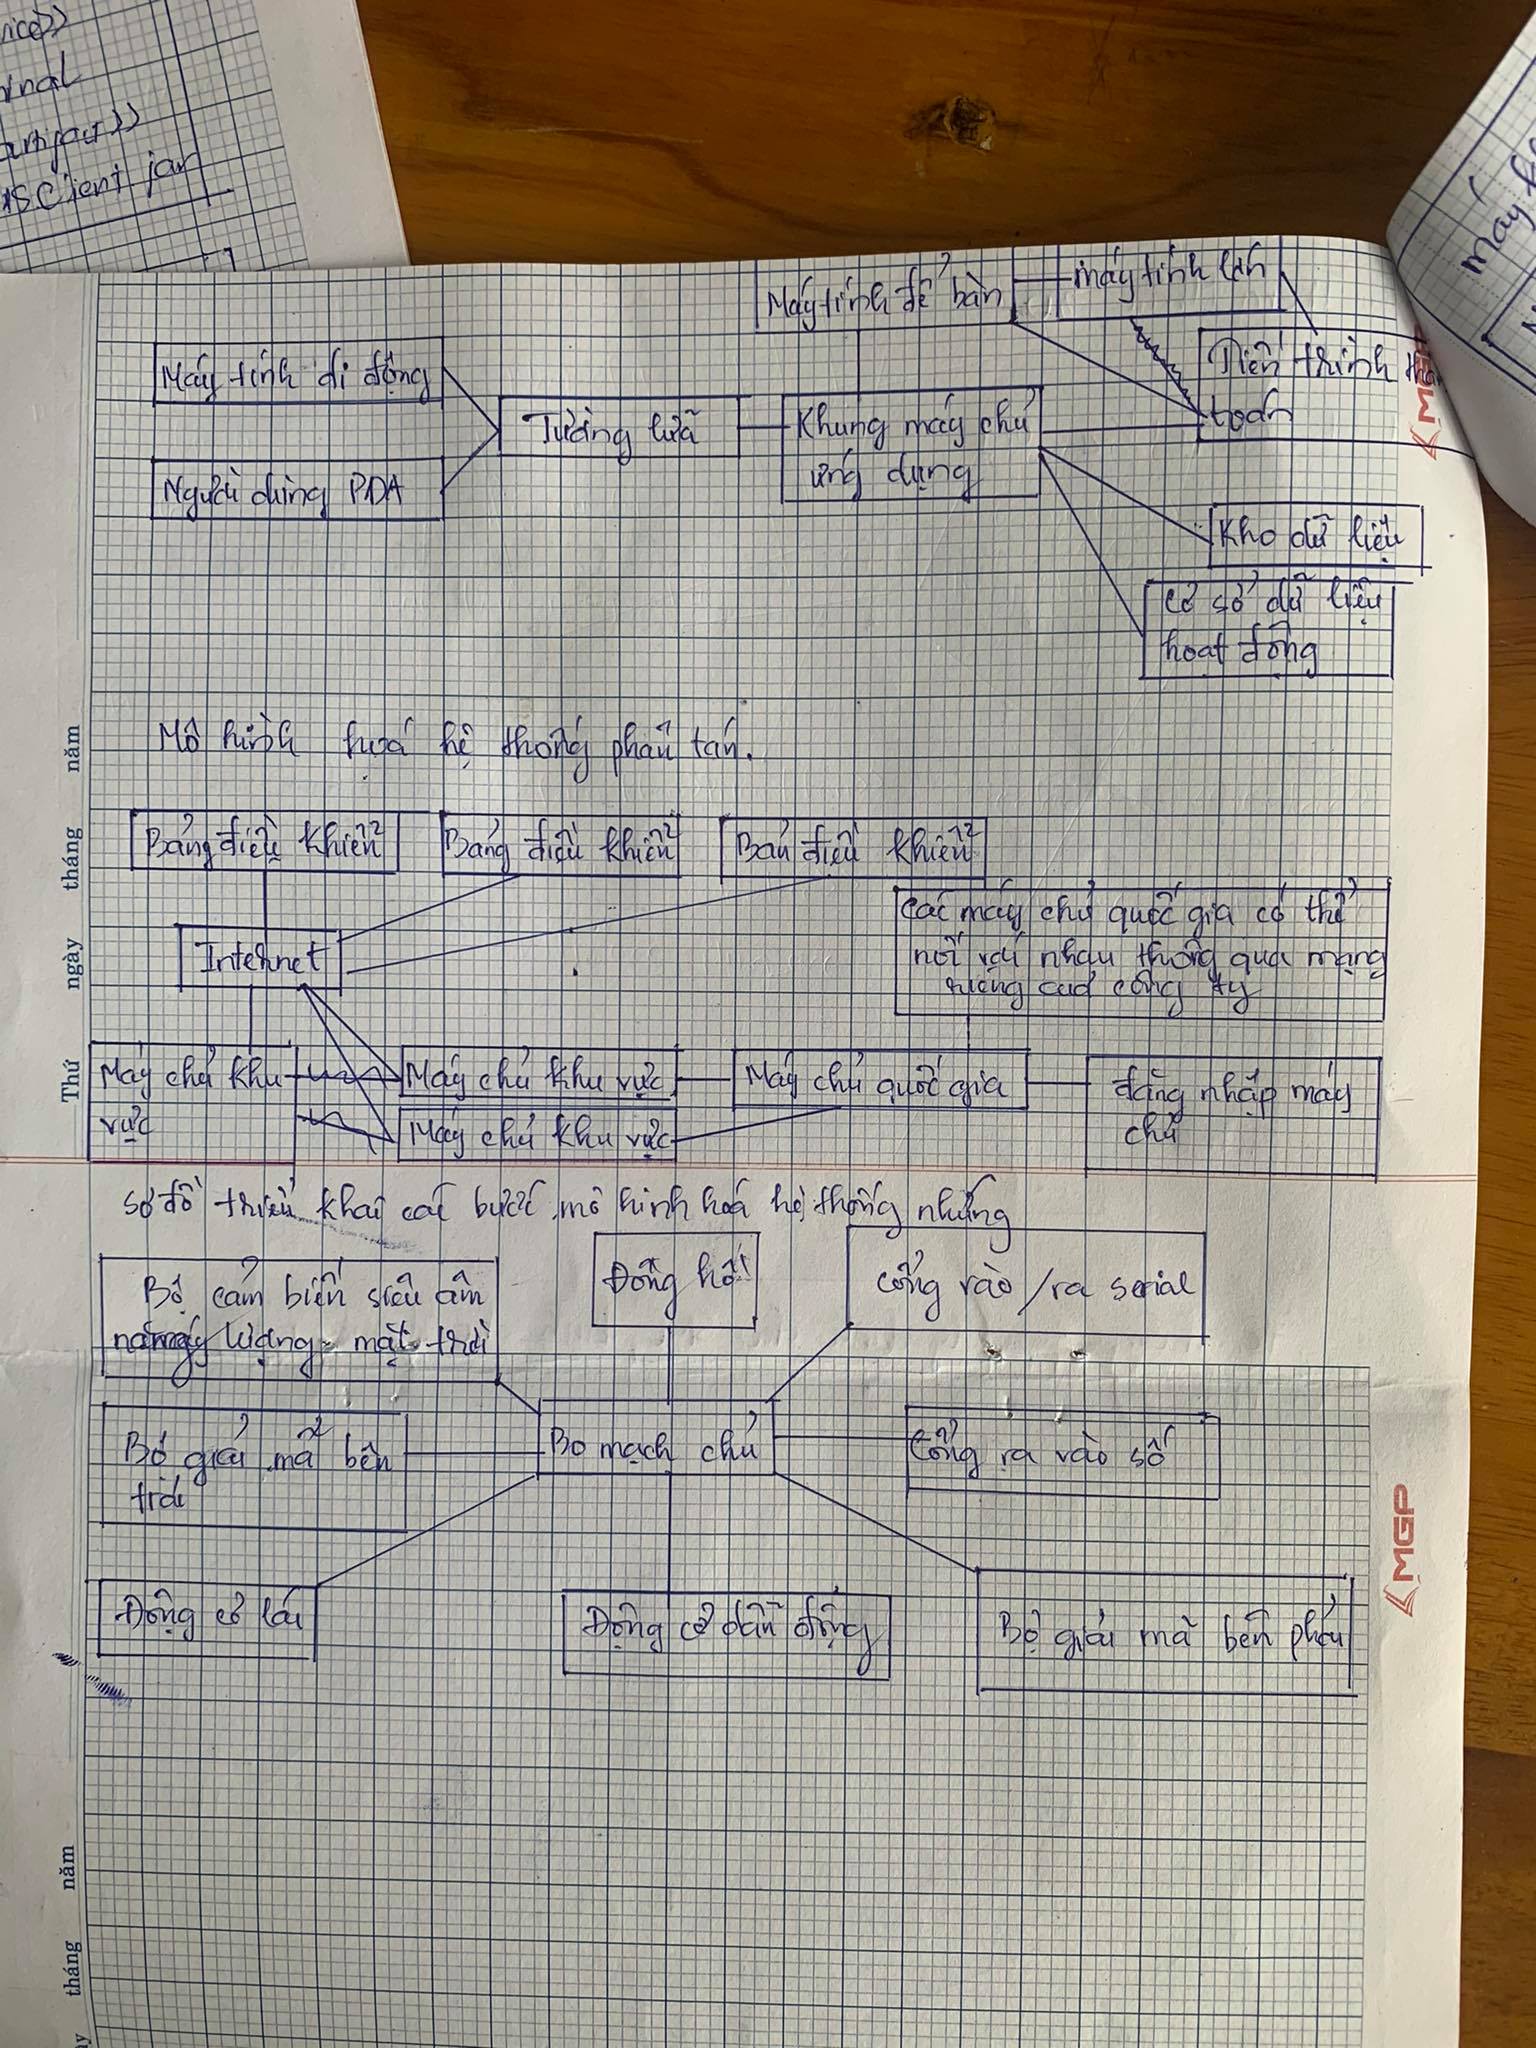 minal
Client jar
Máy tính để bàn
máy tính lớn
Máy tính di động
Tường lửa
Khung máy chủ
ứng dụng
Tiến trình
toán
Người dùng PDA
Kho dữ liệu
Cơ sở dữ liệu
hoạt động
Mô hình hoá hệ thống phân tán.
Bảng điều khiển
Bảng điều khiển
Bản điều khiển
Internet
Các máy chủ quốc gia có thể
nối với nhau thông qua mạng
riêng của công ty
Máy chủ khu
vực
Máy chủ khu vực
Máy chủ khu vực
Máy chủ quốc gia
đăng nhập máy
chủ
sơ đồ triển khai các bước mô hình hoá hệ thống nhúng
Bộ cảm biến siêu âm
lượng mặt trời
Đồng hồ
cổng vào/ra serial
Bộ giải mã bên
trái
Bo mạch chủ
Cổng ra vào số
Động cơ lái
Động cơ dẫn động
Bộ giải mã bên phải
Thứ ngày tháng năm
tháng năm
MGP
máy